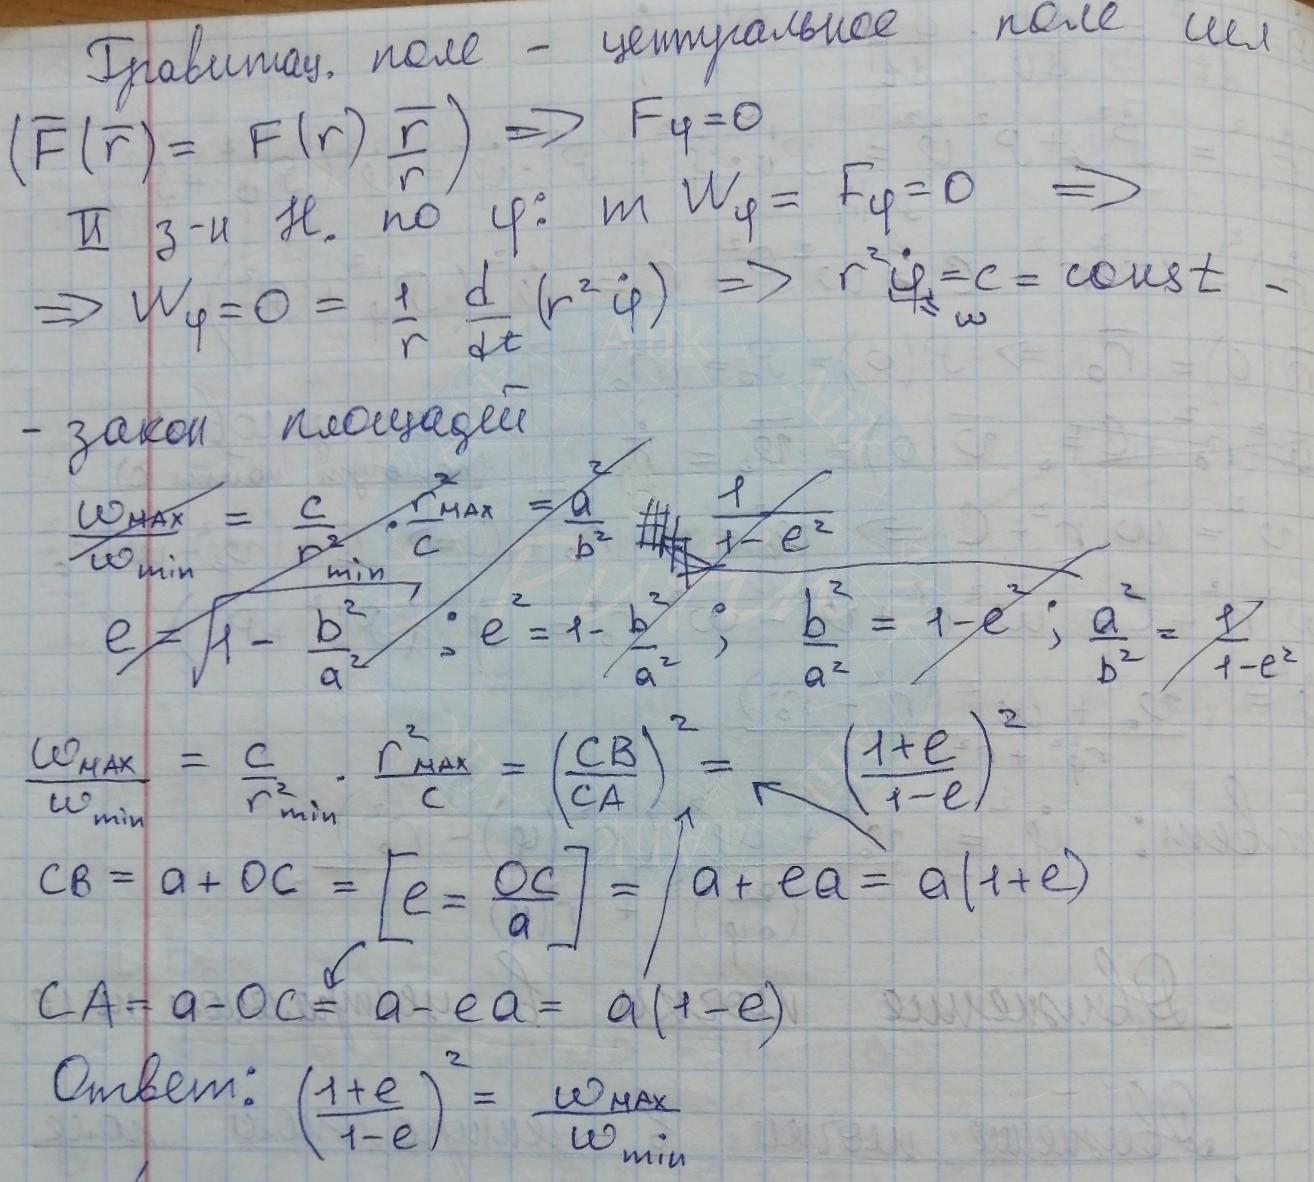 Гравитац. поле - центральное поле сил
(F̅(r̅) = F(r) r̅/r) => Fφ=0
II з-н Н. по φ: m Wφ = Fφ=0 =>
=> Wφ=0 = 1/r d/dt (r²φ̇) => r²φ̇ = c = const -
ω
- закон площадей
ωмах/ωmin = c/r²min · r²мах/c = a²/b² 1/(1-e²)
e = √(1 - b²/a²) ; e² = 1 - b²/a² ; b²/a² = 1-e² ; a²/b² = 1/(1-e²)
ωмах/ωmin = c/r²min · r²мах/c = (CB/CA)² = ((1+e)/(1-e))²
CB = a + OC = [e = OC/a] = a + ea = a(1+e)
CA = a - OC = a - ea = a(1-e)
Ответ: ((1+e)/(1-e))² = ωмах/ωmin